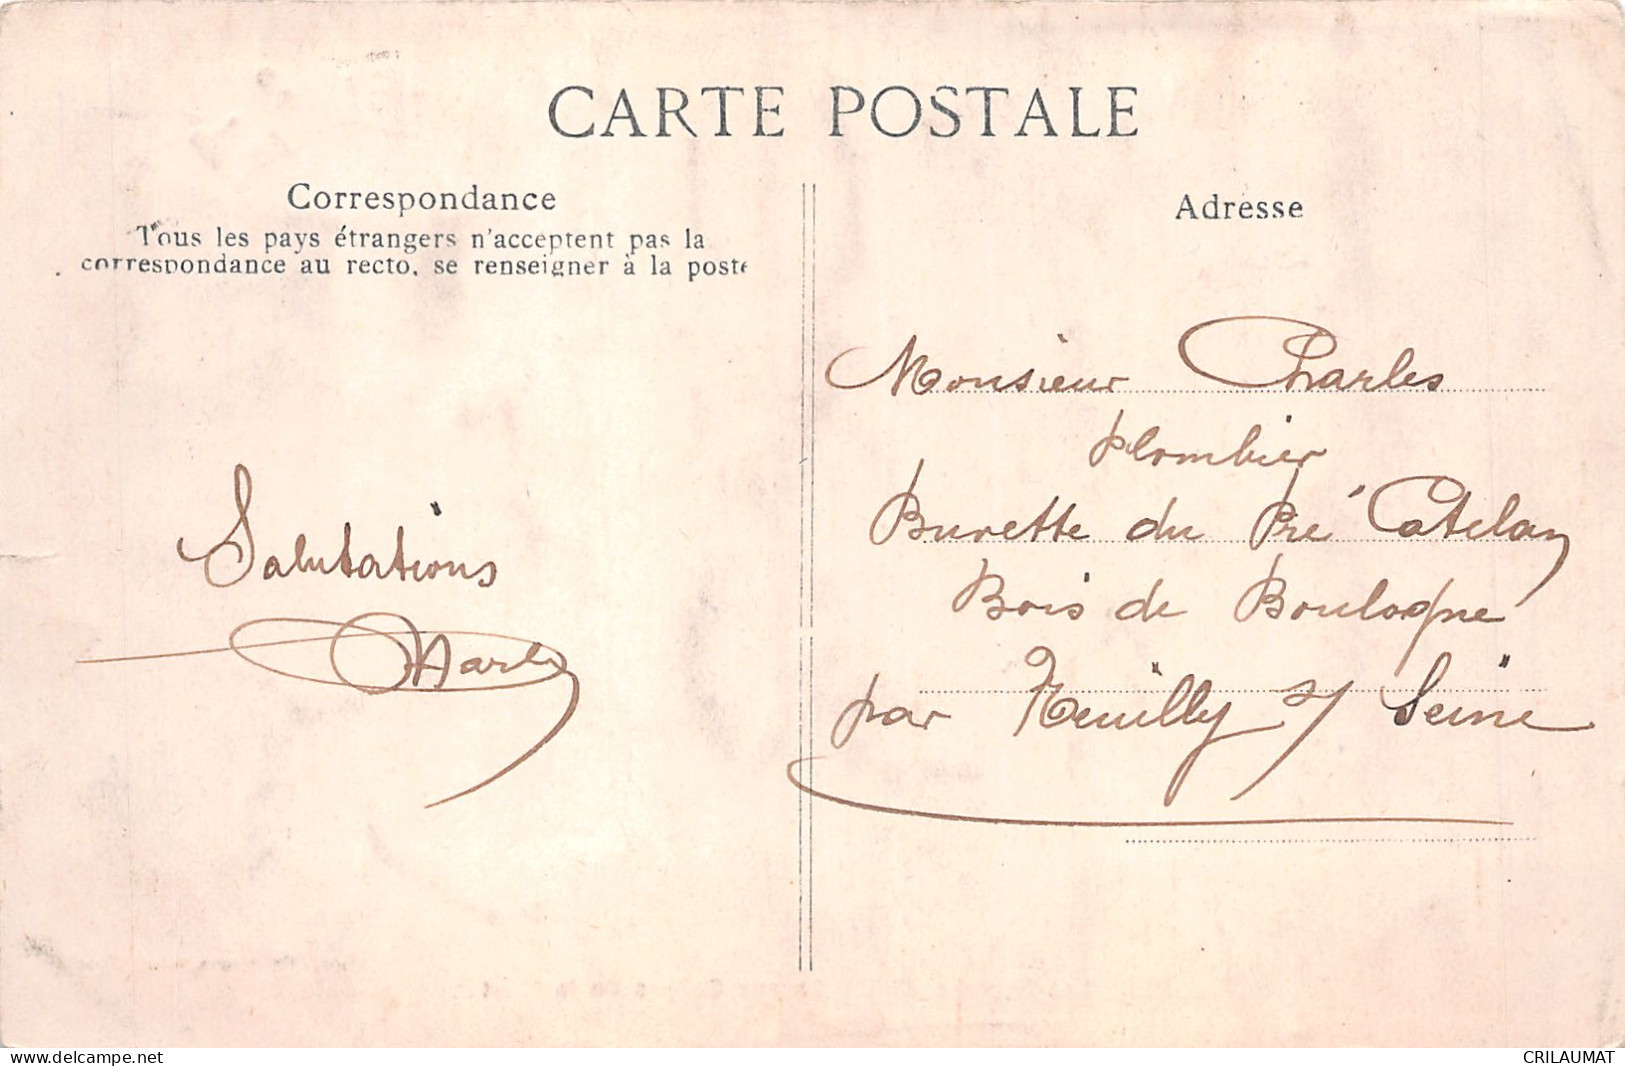 CARTE POSTALE
Correspondance
Tous les pays étrangers n'acceptent pas la
correspondance au recto, se renseigner à la poste
Salutations
Adresse
Monsieur Charles
Plombier
Buvette du Pré Catelan
Bois de Boulogne
par Neuilly s/ Seine
www.delcampe.net
CRILAUMAT